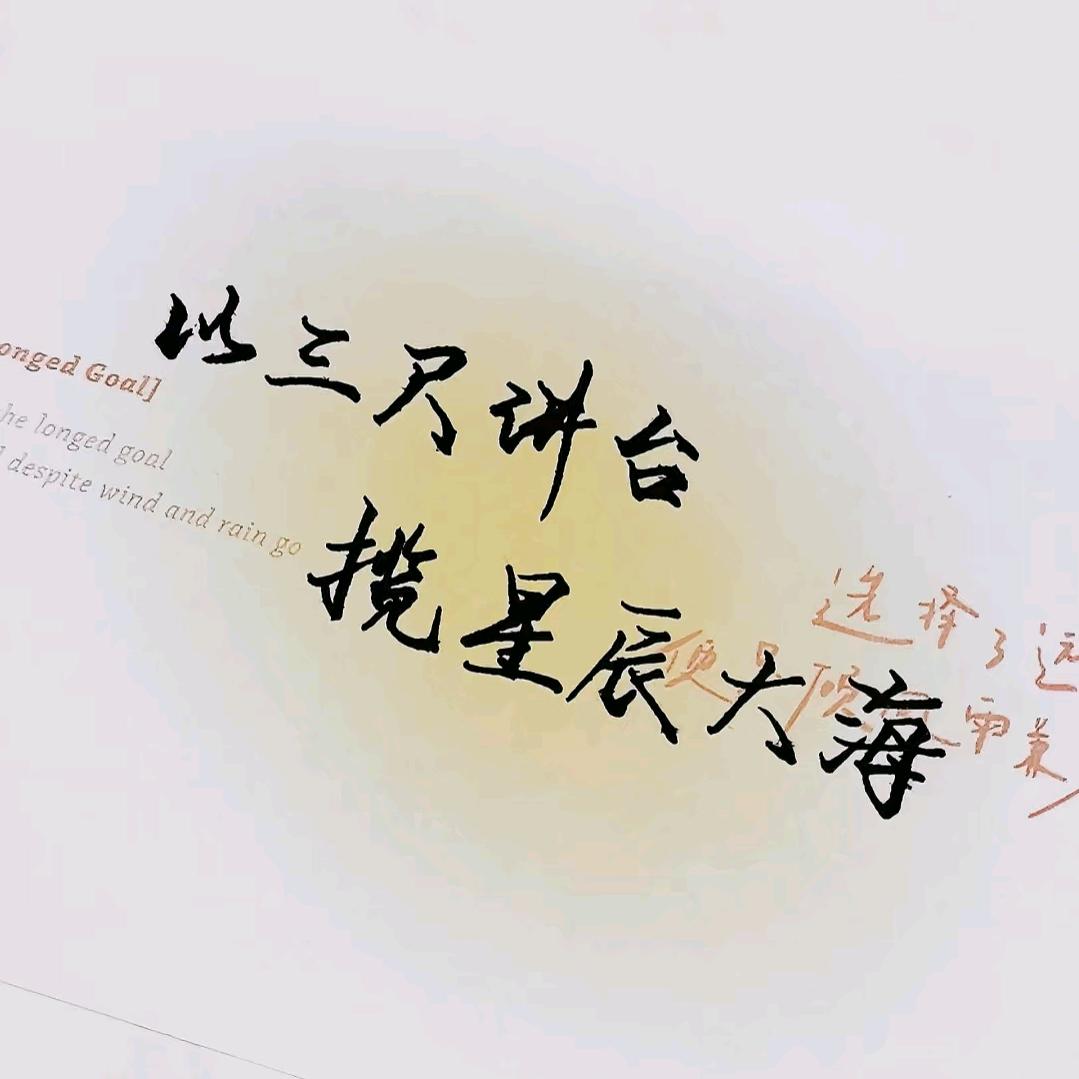 以三尺讲台
揽星辰大海
onged Goal]
he longed goal
despite wind and rain go
选择了远
便是 雨兼